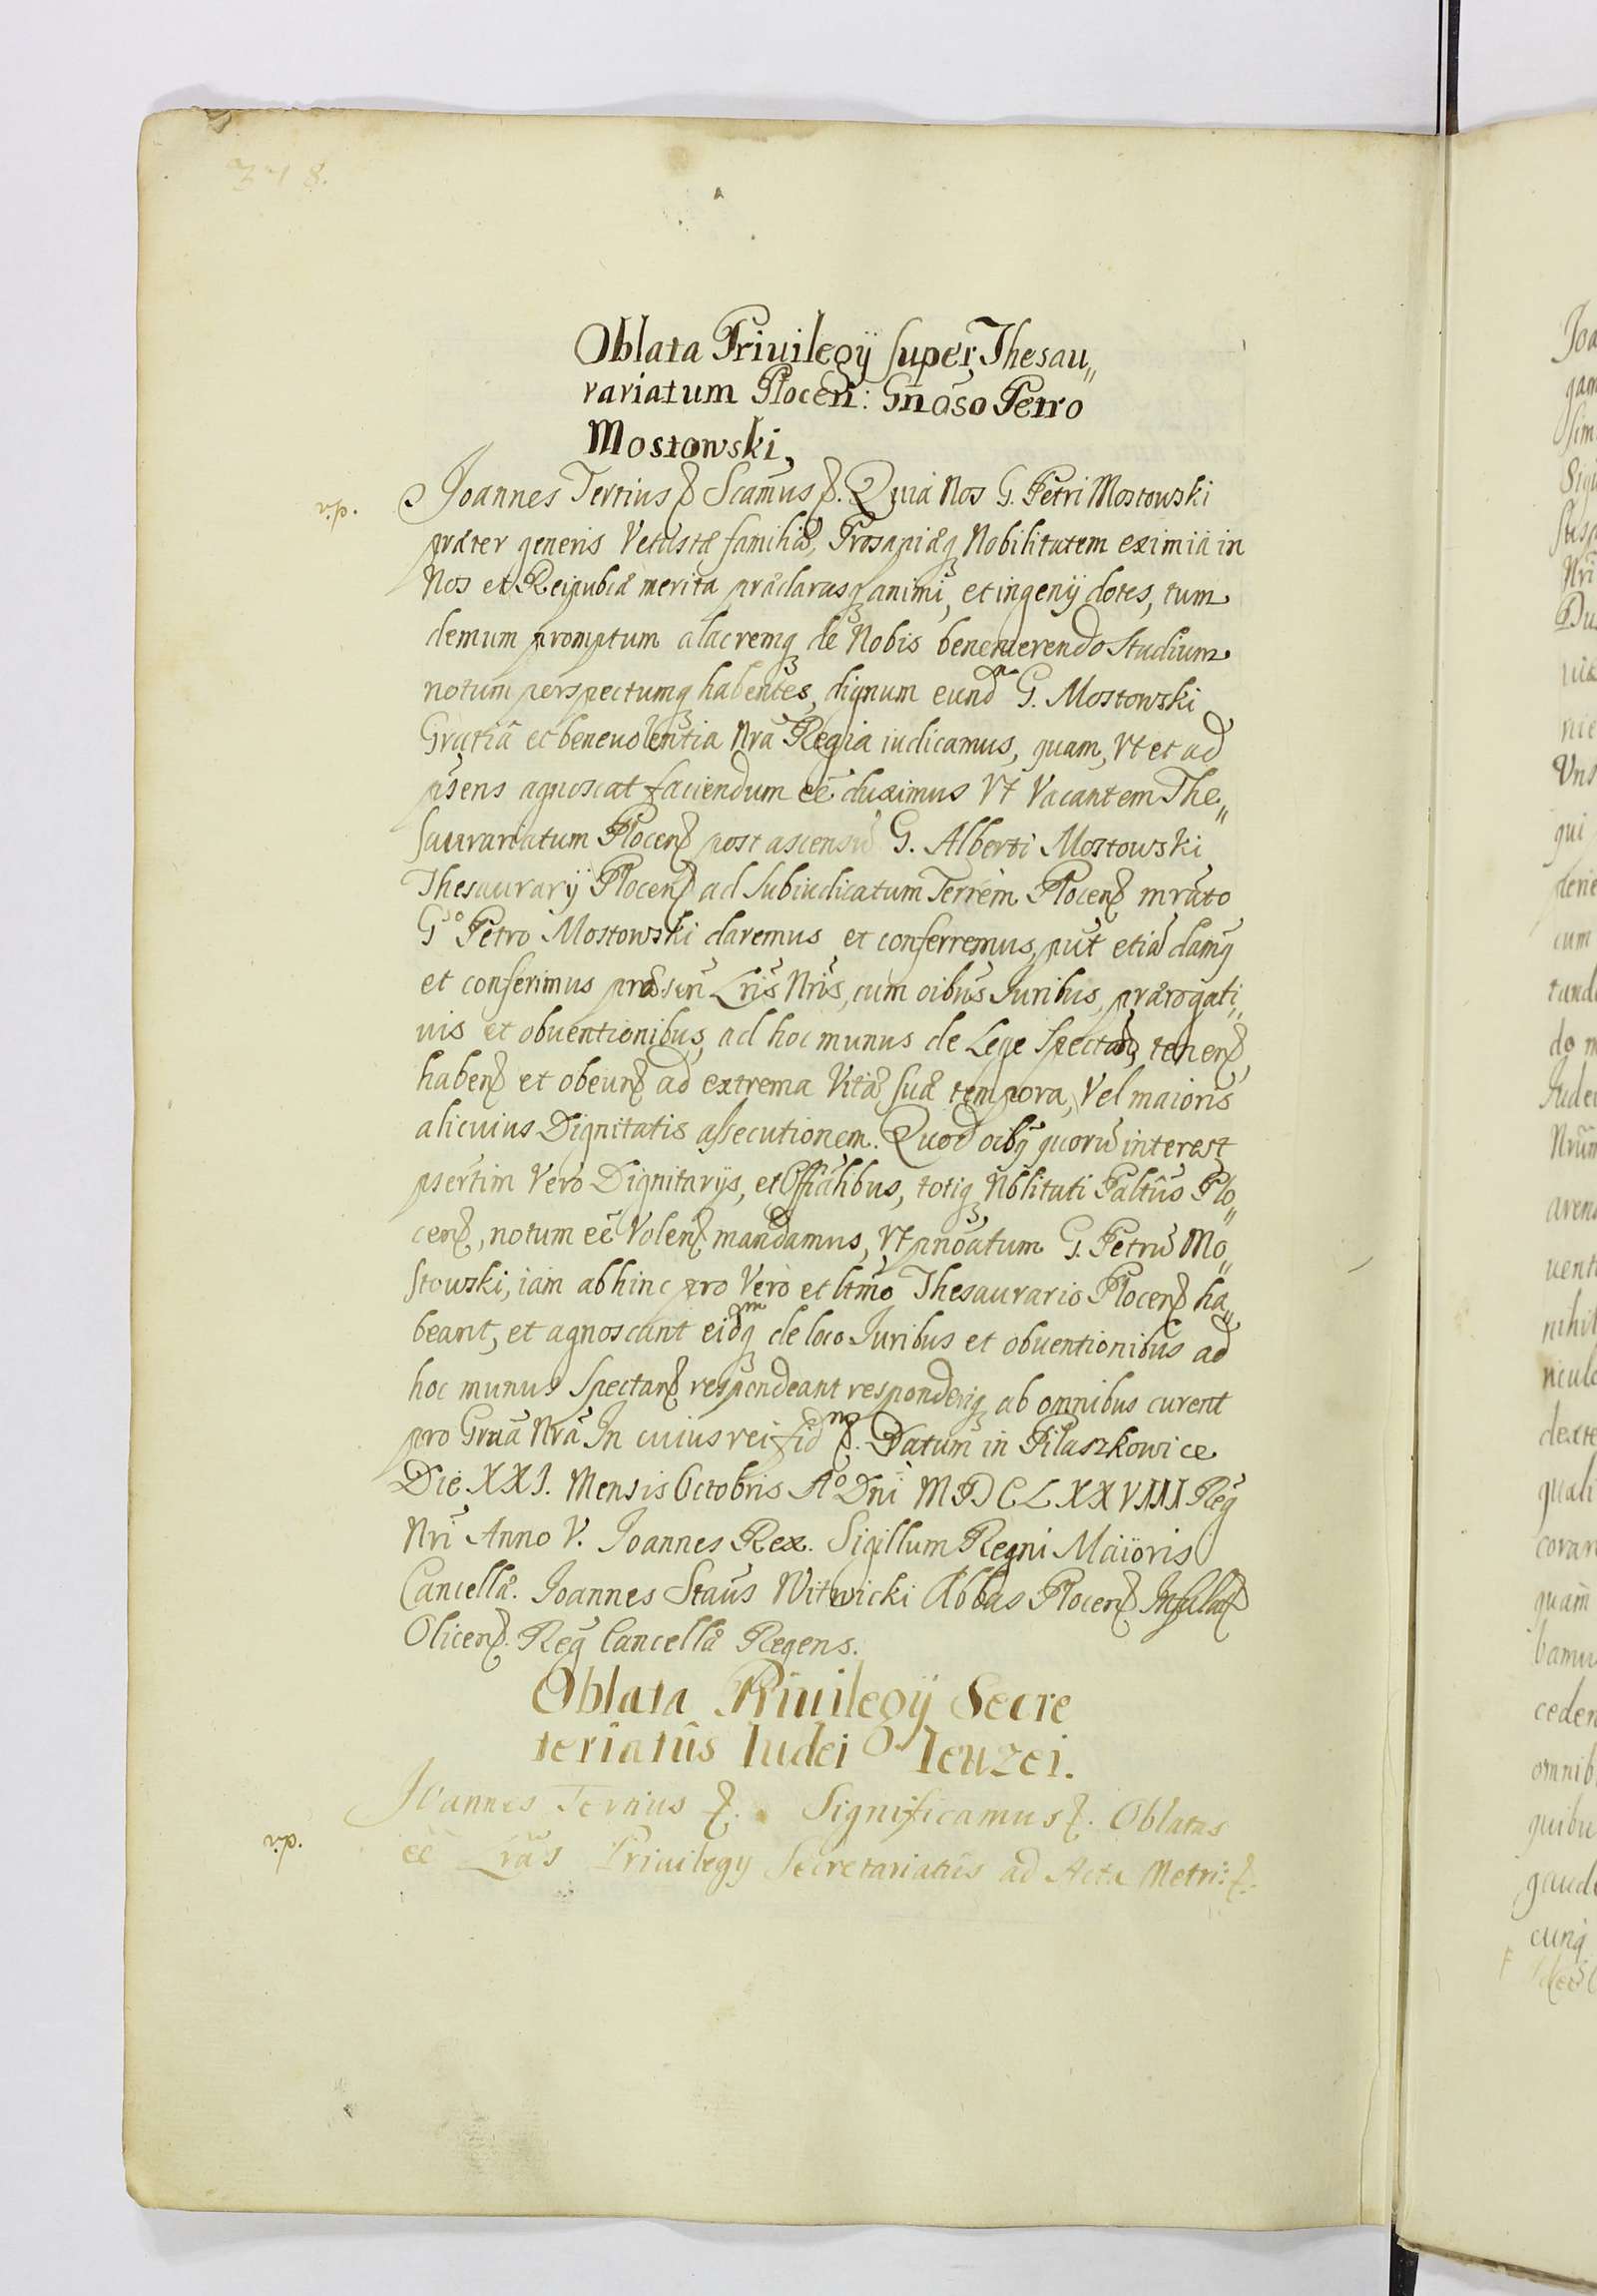 718.
Oblata Priuilegÿ super Thesau„
rariatum Plocen: Gnoso Petro
Mostowski,
v.p.
Joannes Tertius etc. Scamus etc. Quia Nos G. Petri Mostowski
præter generis Vetustæ familiæ, Prosapiæq Nobilitatem eximia in
Nos et Reipubcæ merita præclarasq animi, et ingenÿ dotes, tum
demum promptum alacremq de Nobis benemerendo studium
notum perspectumq habentes, dignum eundm G. Mostowski
Gratiâ et beneuolentia Nrã Regia iudicamus, quam, Vt et ad
pñsens agnoscat faciendum eẽ duximus Vt Vacantem The„
saurariatum Plocen post ascensũ G. Alberti Mostowski
Thesaurarÿ Plocen ad Subiudicatum Terrem Plocen mrato
Go Petro Mostowski daremus et conferremus, put etiã damq
et conferimus præsen Lris Nris, cum oibus Juribus, prærogati„
uis et obuentionibus, ad hoc munus de Lege Spectan, tenen,
haben et obeun ad extrema Vitæ suæ tempora, Vel maioris
alicuius Dignitatis assecutionem. Quod oibq quorũ interest
psertim Vero Dignitarijs, et Offialibus, totiq Nblitati Paltũs Plo„
cen, notum eẽ Volen mandamus, Vt pnoatum G. Petrũ Mo„
stowski, iam abhinc pro Vero et ltmo Thesaurario Plocen ha„
beant, et agnoscant eidmq de loco Juribus et obuentionibus ad
hoc munus Spectan respondeant responderiq ab omnibus curent
pro Grua Nrã In cuius rei fidm etc. Datum in Pilaszkowice
Die XXI. Mensis Octobris Ao Dni MDCLXXVIII Reg
Nri Anno V. Joannes Rex. Sigillum Regni Maioris
Cancellæ. Joannes Staus Witwicki Abbas Plocen
Olicen. Reg Cancellæ Regens.
Oblata Priuilegÿ Secre
teriatûs Iudei
v.p.
Joannes Tertius etc. Significamus etc. Oblatas
eẽ Lras Priuilegy Secretariatûs ad Acta Metri: etc.